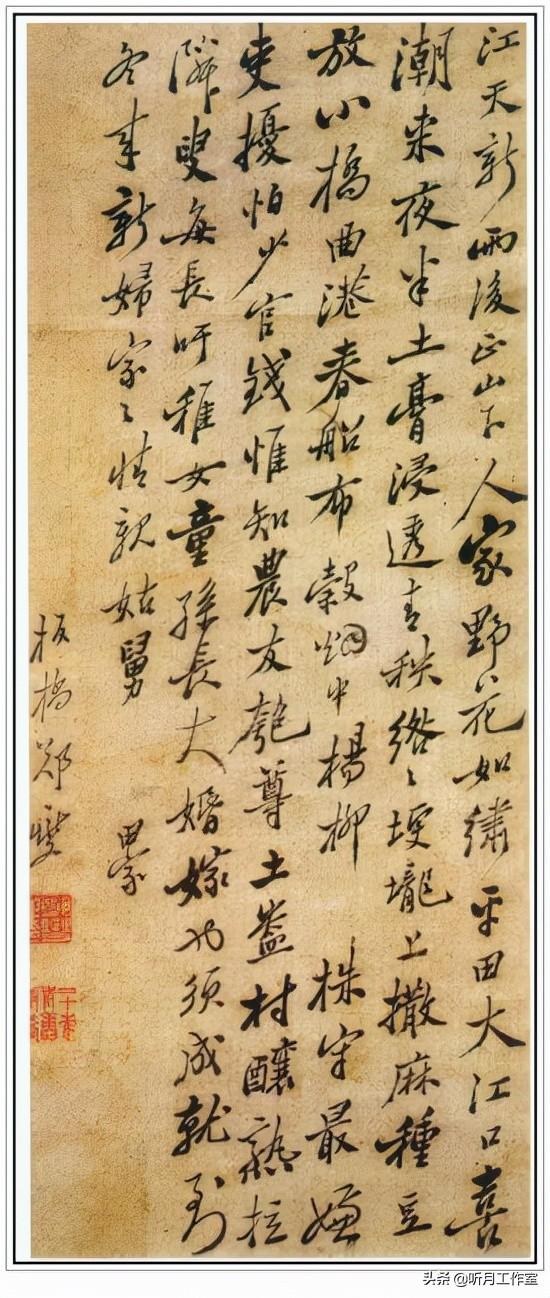 江天新雨後正山下人家野花如繡平田大江口喜
潮来夜半土膏浸透青秧綹〻埂壠上撒麻種豆
放小橋曲港春船布穀烟中楊柳 株守最嫌
吏擾怕少官錢惟知農友匏尊土盎村釀熟拉
隣叟每長吁稚女童孫長大婚嫁也須成就到
冬来新婦家〻情親姑舅 田家
板橋鄭燮
头条 @听月工作室